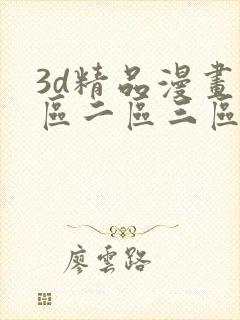 3d精品漫畫
區二區三區
廖雲路